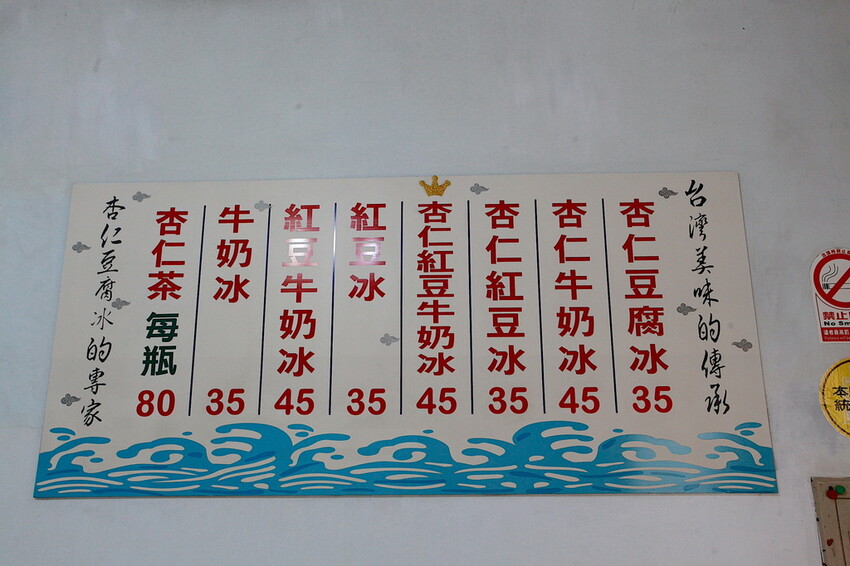 台灣美味的傳承
杏仁豆腐冰 35
杏仁牛奶冰 45
杏仁紅豆冰 35
杏仁紅豆牛奶冰 45
紅豆冰 35
紅豆牛奶冰 45
牛奶冰 35
杏仁茶 每瓶 80
杏仁豆腐冰的專家
禁止
No Sm
本
統